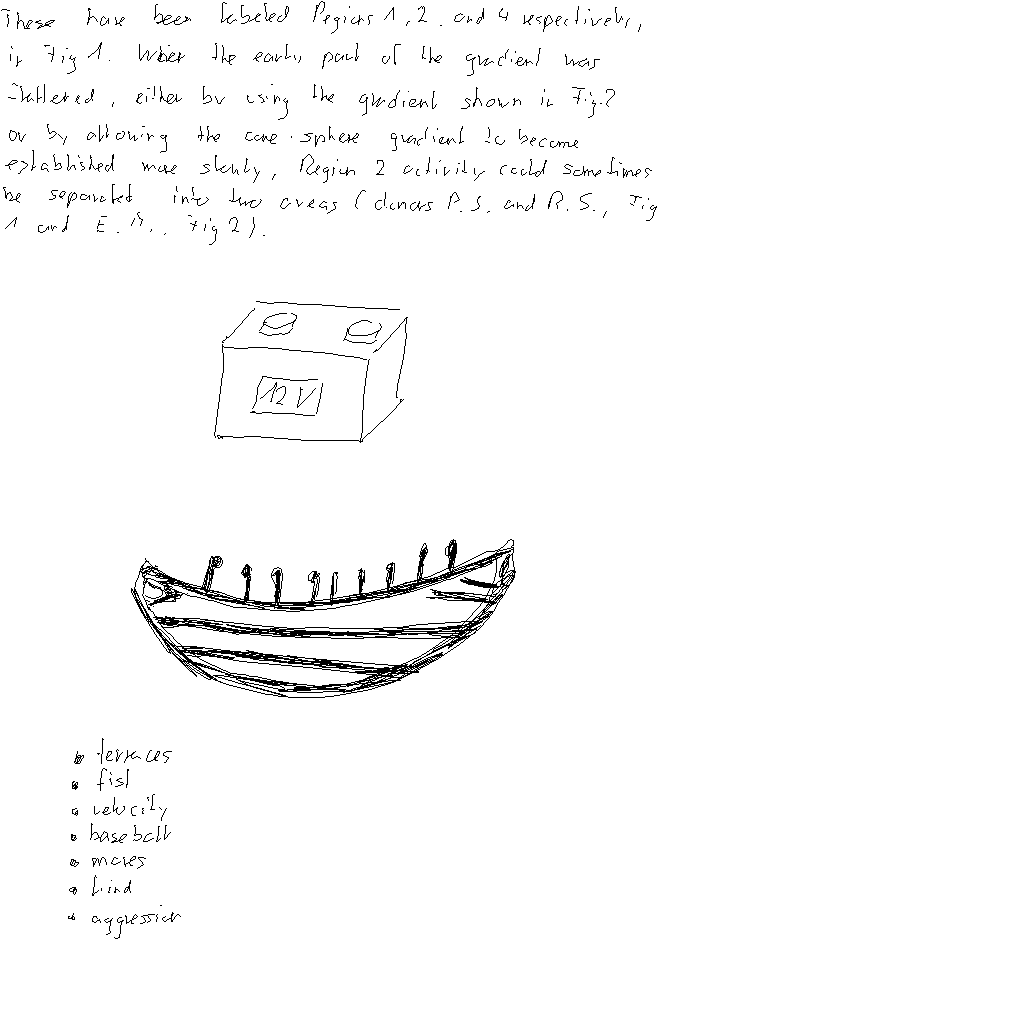 These have been labeled Regions 1, 2, and 4 respectively,
in Fig 1. When the early part of the gradient was
flattened, either by using the gradient shown in Fig. 2
or by allowing the cone-sphere gradient to become
established more slowly, Region 2 activity could sometimes
be separated into two areas (donors P.S. and R.S., Fig
1 and E. Fig 2).
12 V
terraces
fist
velocity
baseball
moves
kind
aggression